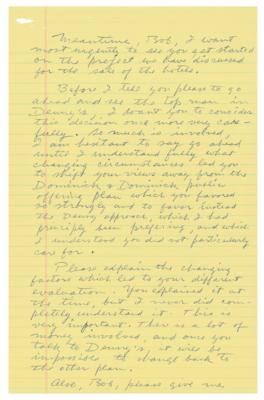 Meantime, Bob, I want
most urgently to see you get started
on the project we have discussed
for the sale of the hotels.
Before I tell you please to go
ahead and see the top man in
Denny's, I want you to consider
this decision once more very care-
fully. So much is involved,
I am hesitant to say go ahead
until I understand fully what
changing circumstances led you
to shift your views away from the
Dominick & Dominick public
offering plan which you favored
so strongly and to favor instead
the Denny approach, which I had
previously been preferring, and which
I understood you did not particularly
care for.
Please explain the changing
factors which led to your different
evaluation. You explained it at
the time, but I never did com-
pletely understand it. This is
very important. There is a lot of
money involved, and once you
talk to Denny's, it will be
impossible to change back to
the other plan.
Also, Bob, please give me